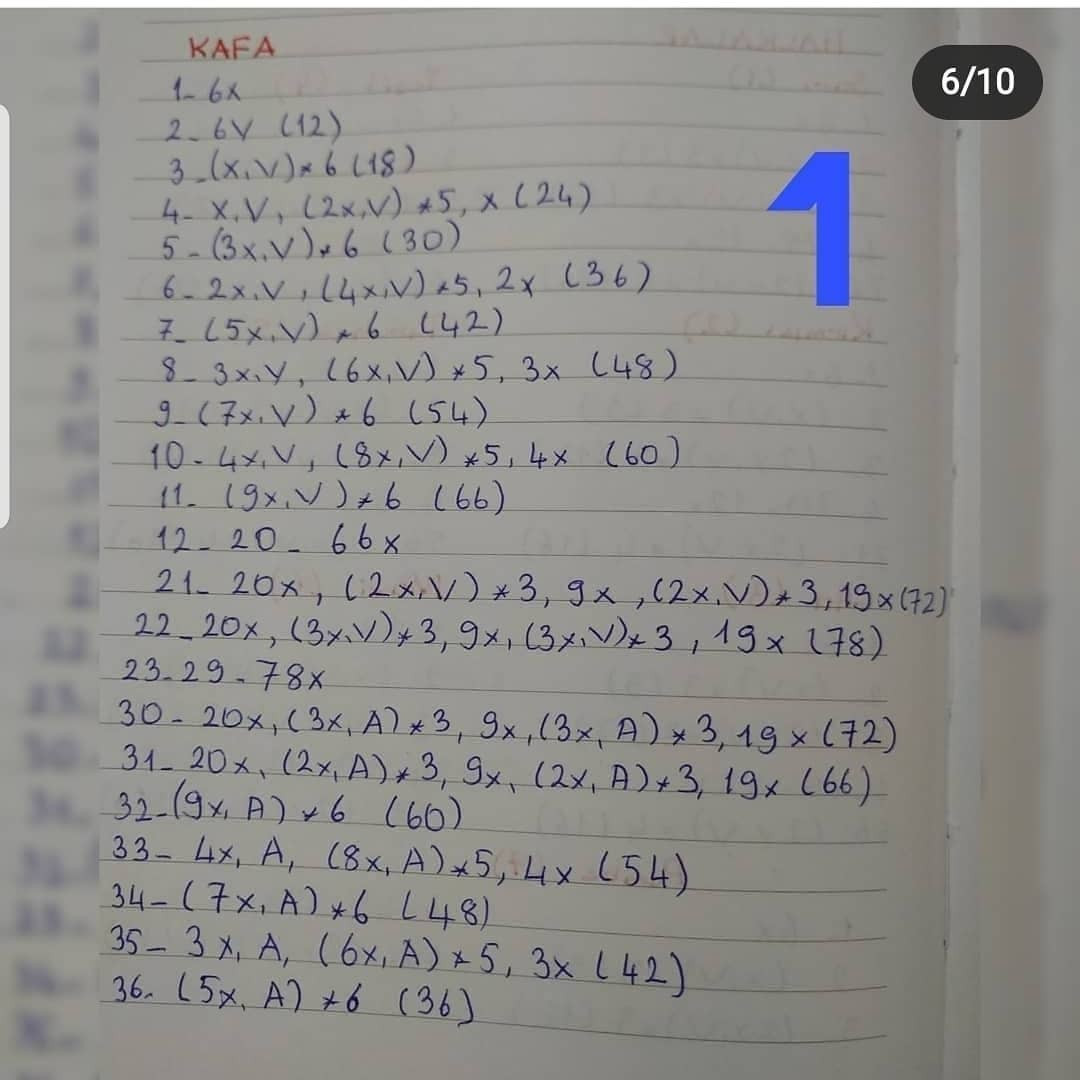 KAFA
6/10
1
1- 6x
2- 6V (12)
3-(x,V)*6 (18)
4- x,V, (2x,V) *5, x (24)
5-(3x,V)*6 (30)
6- 2x,V, (4x,V)*5, 2x (36)
7- (5x,V)*6 (42)
8- 3x,V, (6x,V)*5, 3x (48)
9-(7x,V)*6 (54)
10- 4x,V, (8x,V)*5, 4x (60)
11- (9x,V)*6 (66)
12- 20- 66x
21- 20x, (2x,V)*3, 9x, (2x,V)*3, 19x(72)
22-20x, (3x,V)*3, 9x, (3x,V)*3, 19x (78)
23-29-78x
30- 20x,(3x,A)*3, 9x,(3x,A)*3, 19x (72)
31-20x, (2x,A)*3, 9x, (2x,A)*3, 19x (66)
32-(9x,A)*6 (60)
33- 4x, A, (8x,A)*5, 4x (54)
34-(7x,A)*6 (48)
35- 3x, A, (6x,A)*5, 3x (42)
36- (5x, A)*6 (36)